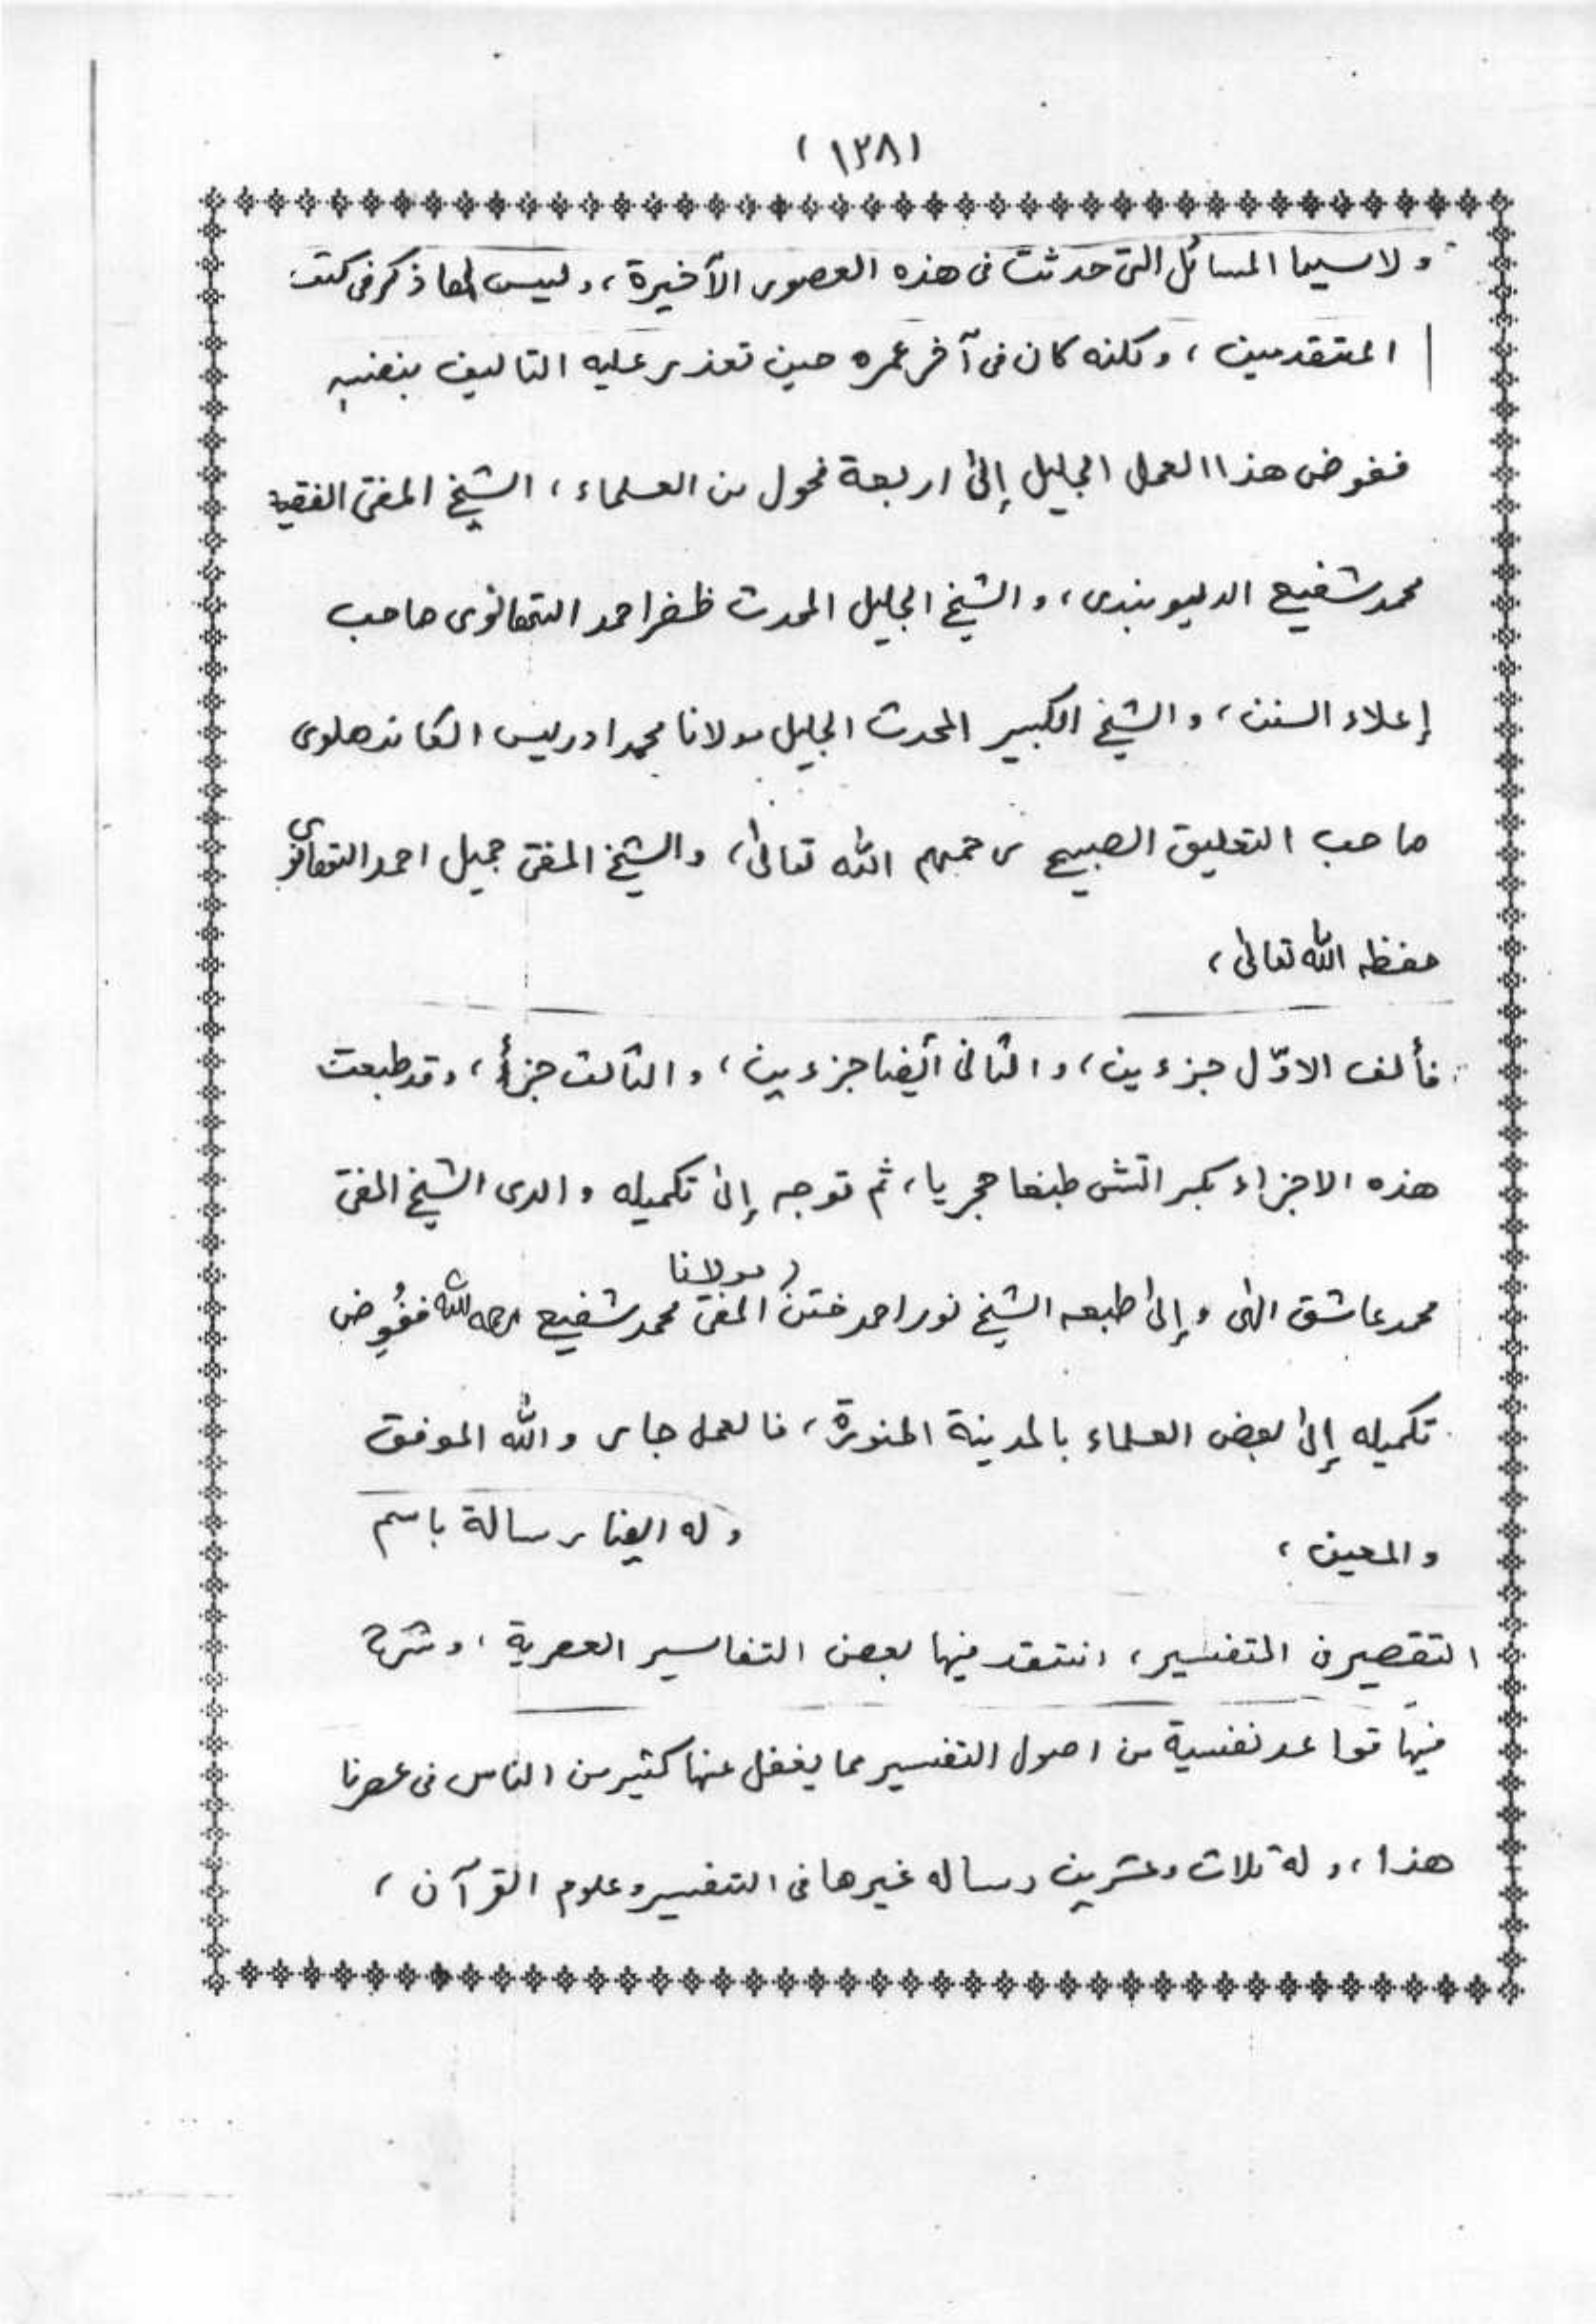 (١٢٨)
ولا سيما المسائل التى حدثت فى هذه العصور الأخيرة، وليس لها ذكر فى كتب
المتقدمين، ولكنه كان فى آخر عمره حين تعذر عليه التاليف بنفسه
ففوض هذا العمل الجليل إلى اربعة فحول من العلماء، الشيخ المفتى الفقيه
محمد شفيع الديوبندى، والشيخ الجليل المحدث ظفر احمد التهانوى صاحب
إعلاء السنن، والشيخ الكبير المحدث الجليل مولانا محمد ادريس الكاندهلوى
صاحب التعليق الصبيح رحمهم الله تعالى، والشيخ المفتى جميل احمد التهانوى
حفظه الله تعالى،
فألف الاوّل جزءين، والثانى أيضا جزءين، والثالث جزأ، وقد طبعت
هذه الاجزاء بكراتشى طبعا حجريا، ثم توجه إلى تكميله والدى الشيخ المفتى
محمد عاشق الهى وإلى طبعه الشيخ نور احمد ختن مولانا المفتى محمد شفيع رحمه الله ففُوِض
تكميله إلى بعض العلماء بالمدينة المنورة، فالعمل جار والله الموفق
والمعين، وله ايضا رسالة باسم
التقصير فى التفسير، انتقد فيها بعض التفاسير العصرية، وشرح
فيها قواعد نفسية من اصول التفسير مما يغفل عنها كثير من الناس فى عصرنا
هذا، وله ثلاث وعشرين رساله غيرها فى التفسير وعلوم القرآن،